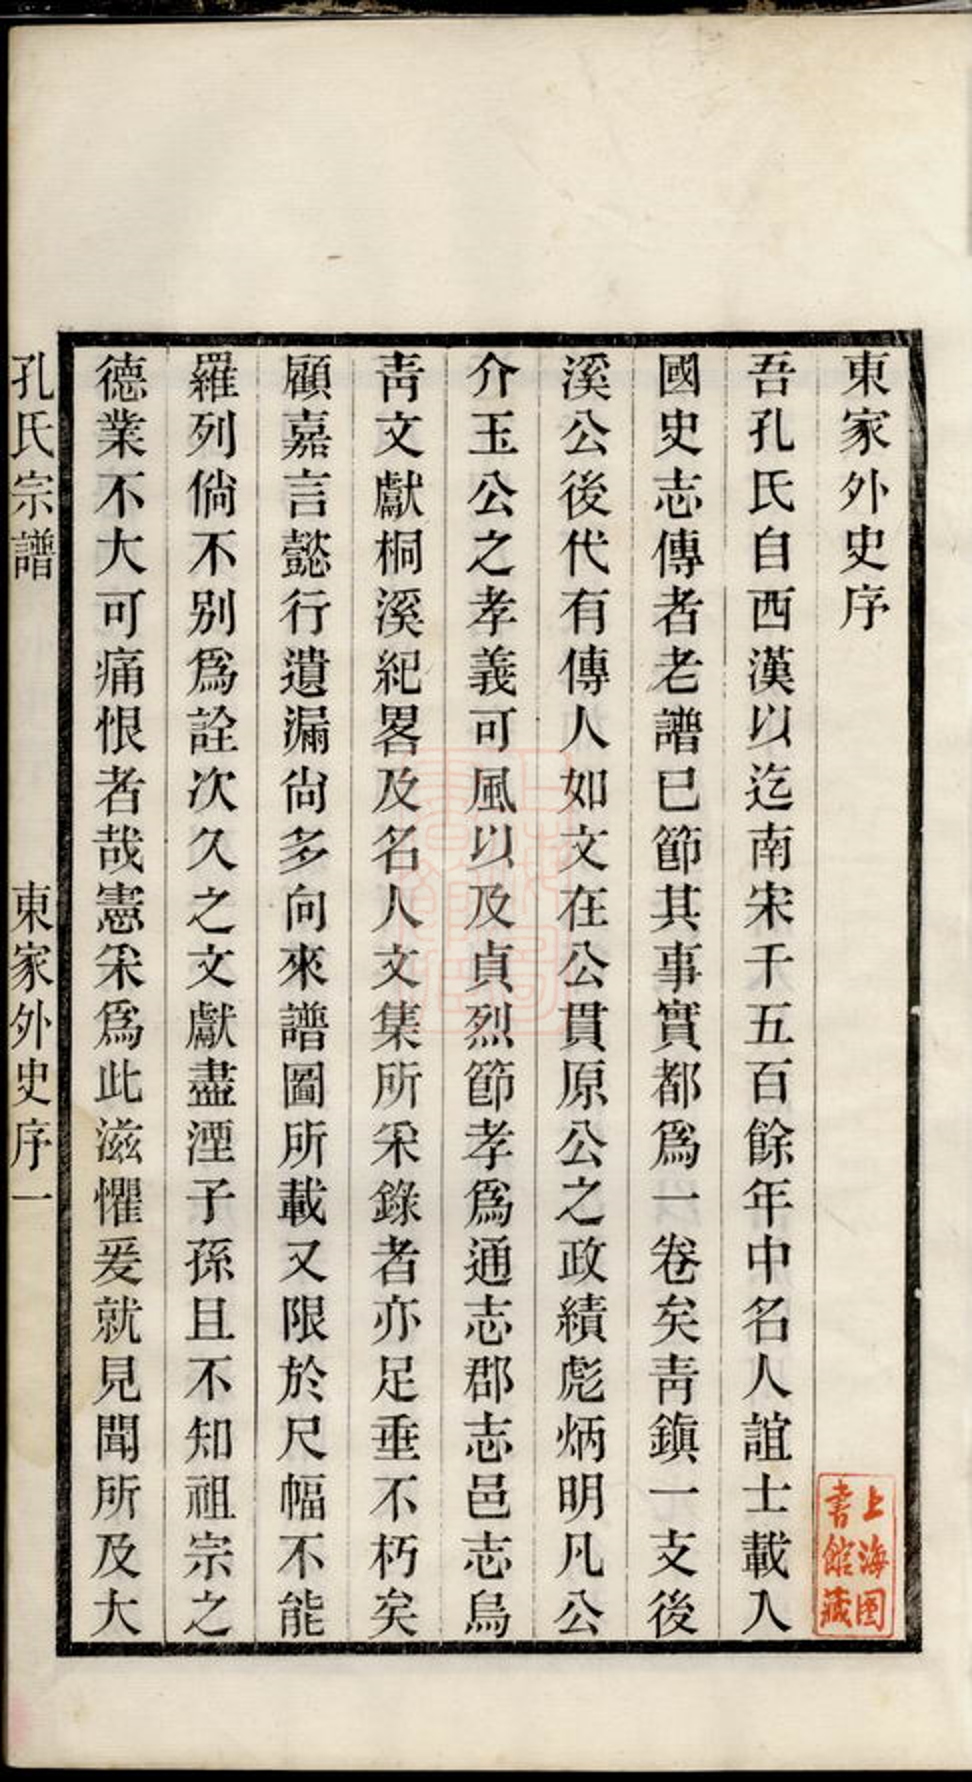 東家外史序
吾孔氏自西漢以迄南宋千五百餘年中名人誼士載入
國史志傳者老譜已節其事實都爲一卷矣靑鎭一支後
溪公後代有傳人如文在公貫原公之政績彪炳明凡公
介玉公之孝義可風以及貞烈節孝爲通志郡志邑志烏
靑文獻桐溪紀畧及名人文集所采錄者亦足垂不朽矣
顧嘉言懿行遺漏尙多向來譜圖所載又限於尺幅不能
羅列倘不别爲詮次久之文獻盡湮子孫且不知祖宗之
德業不大可痛恨者哉憲采爲此滋懼爰就見聞所及大
孔氏宗譜 東家外史序 一
上海图書館藏